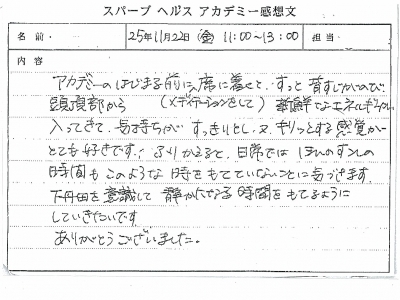 スパーブ ヘルス アカデミー感想文
名前・
25年11月22日(金) 11:00～13:00
担当・
内容
アカデミーのはじまる前に、席に着くと、すっと背すじがのび
頭頂部から (メディテーションをして) 新鮮なエネルギーが
入ってきて、気持ちが すっきりとし、又、キリッとする感覚が
とても好きです。ふりかえると、日常では ほんのすこしの
時間もこのような時をもてていないことに気づきます
下丹田を意識して 静かになる時間をもてるように
していきたいです。
ありがとうございました。